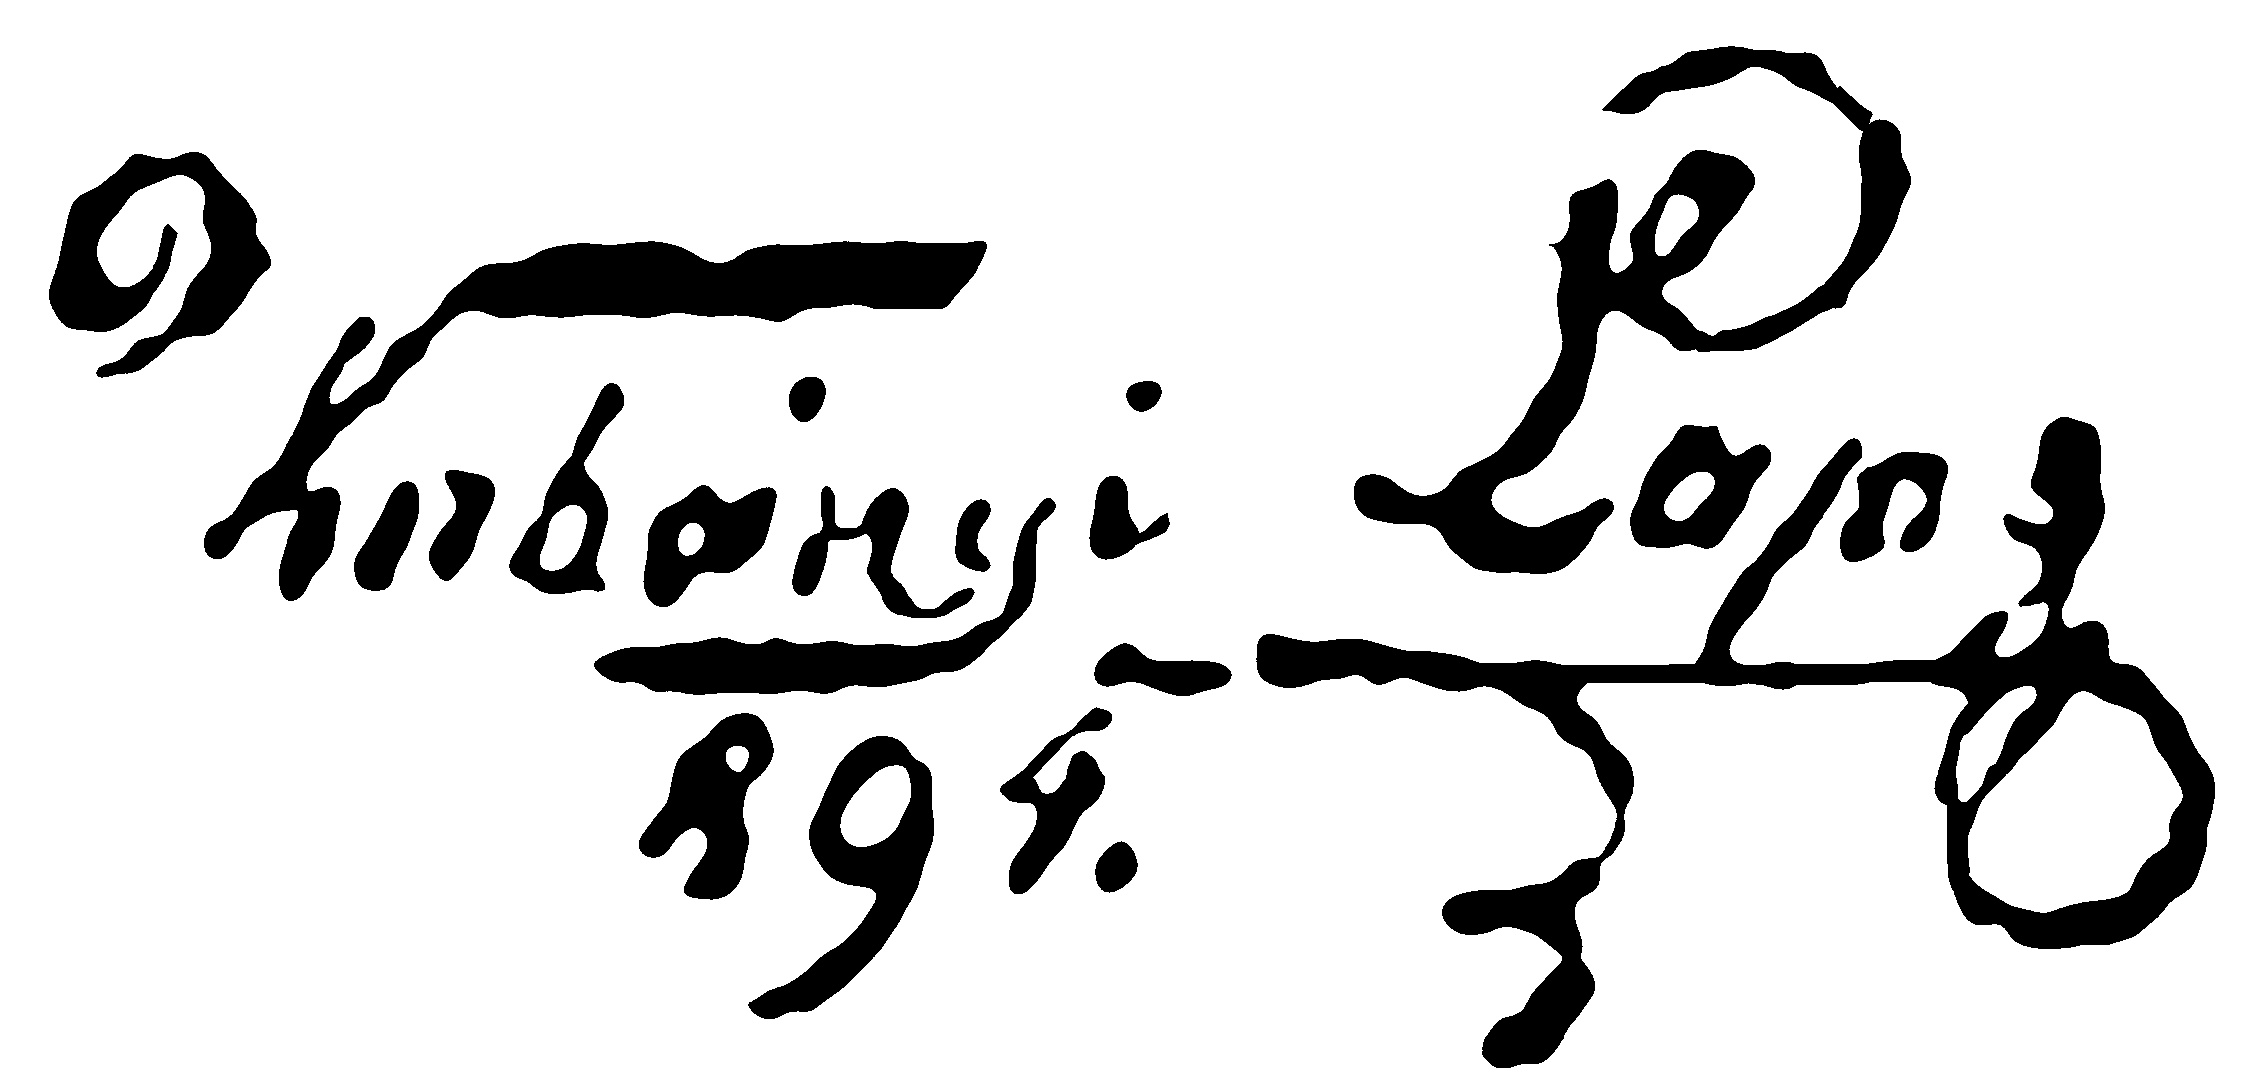 Kubányi Lajos
894.